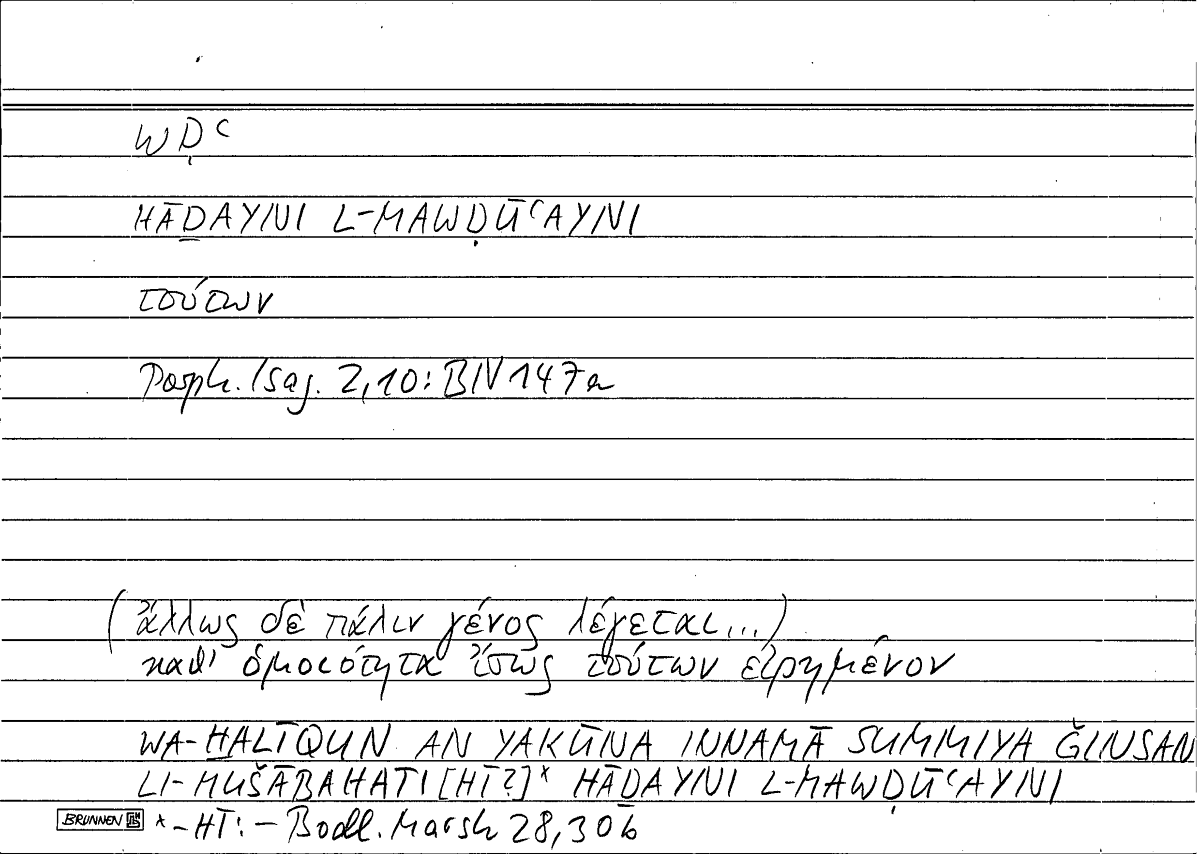 WḌʿ
HĀḎAYNI L-MAWḌŪʿAYNI
τούτων
Porph. Isag. 2,10: BIV 147a
(ἄλλως δὲ πάλιν γένος λέγεται...)
καθ' ὁμοιότητα ἴσως τούτων εἰρημένον
WA-ḪALĪQUN AN YAKŪNA INNAMĀ SUMMIYA ǦINSAN
LI-MUŠĀBAHATI[HĪ?]* HĀDAYNI L-MAWḌŪʿAYNI
BRUNNEN *-HĪ: – Bodl. Marsh 28,30b